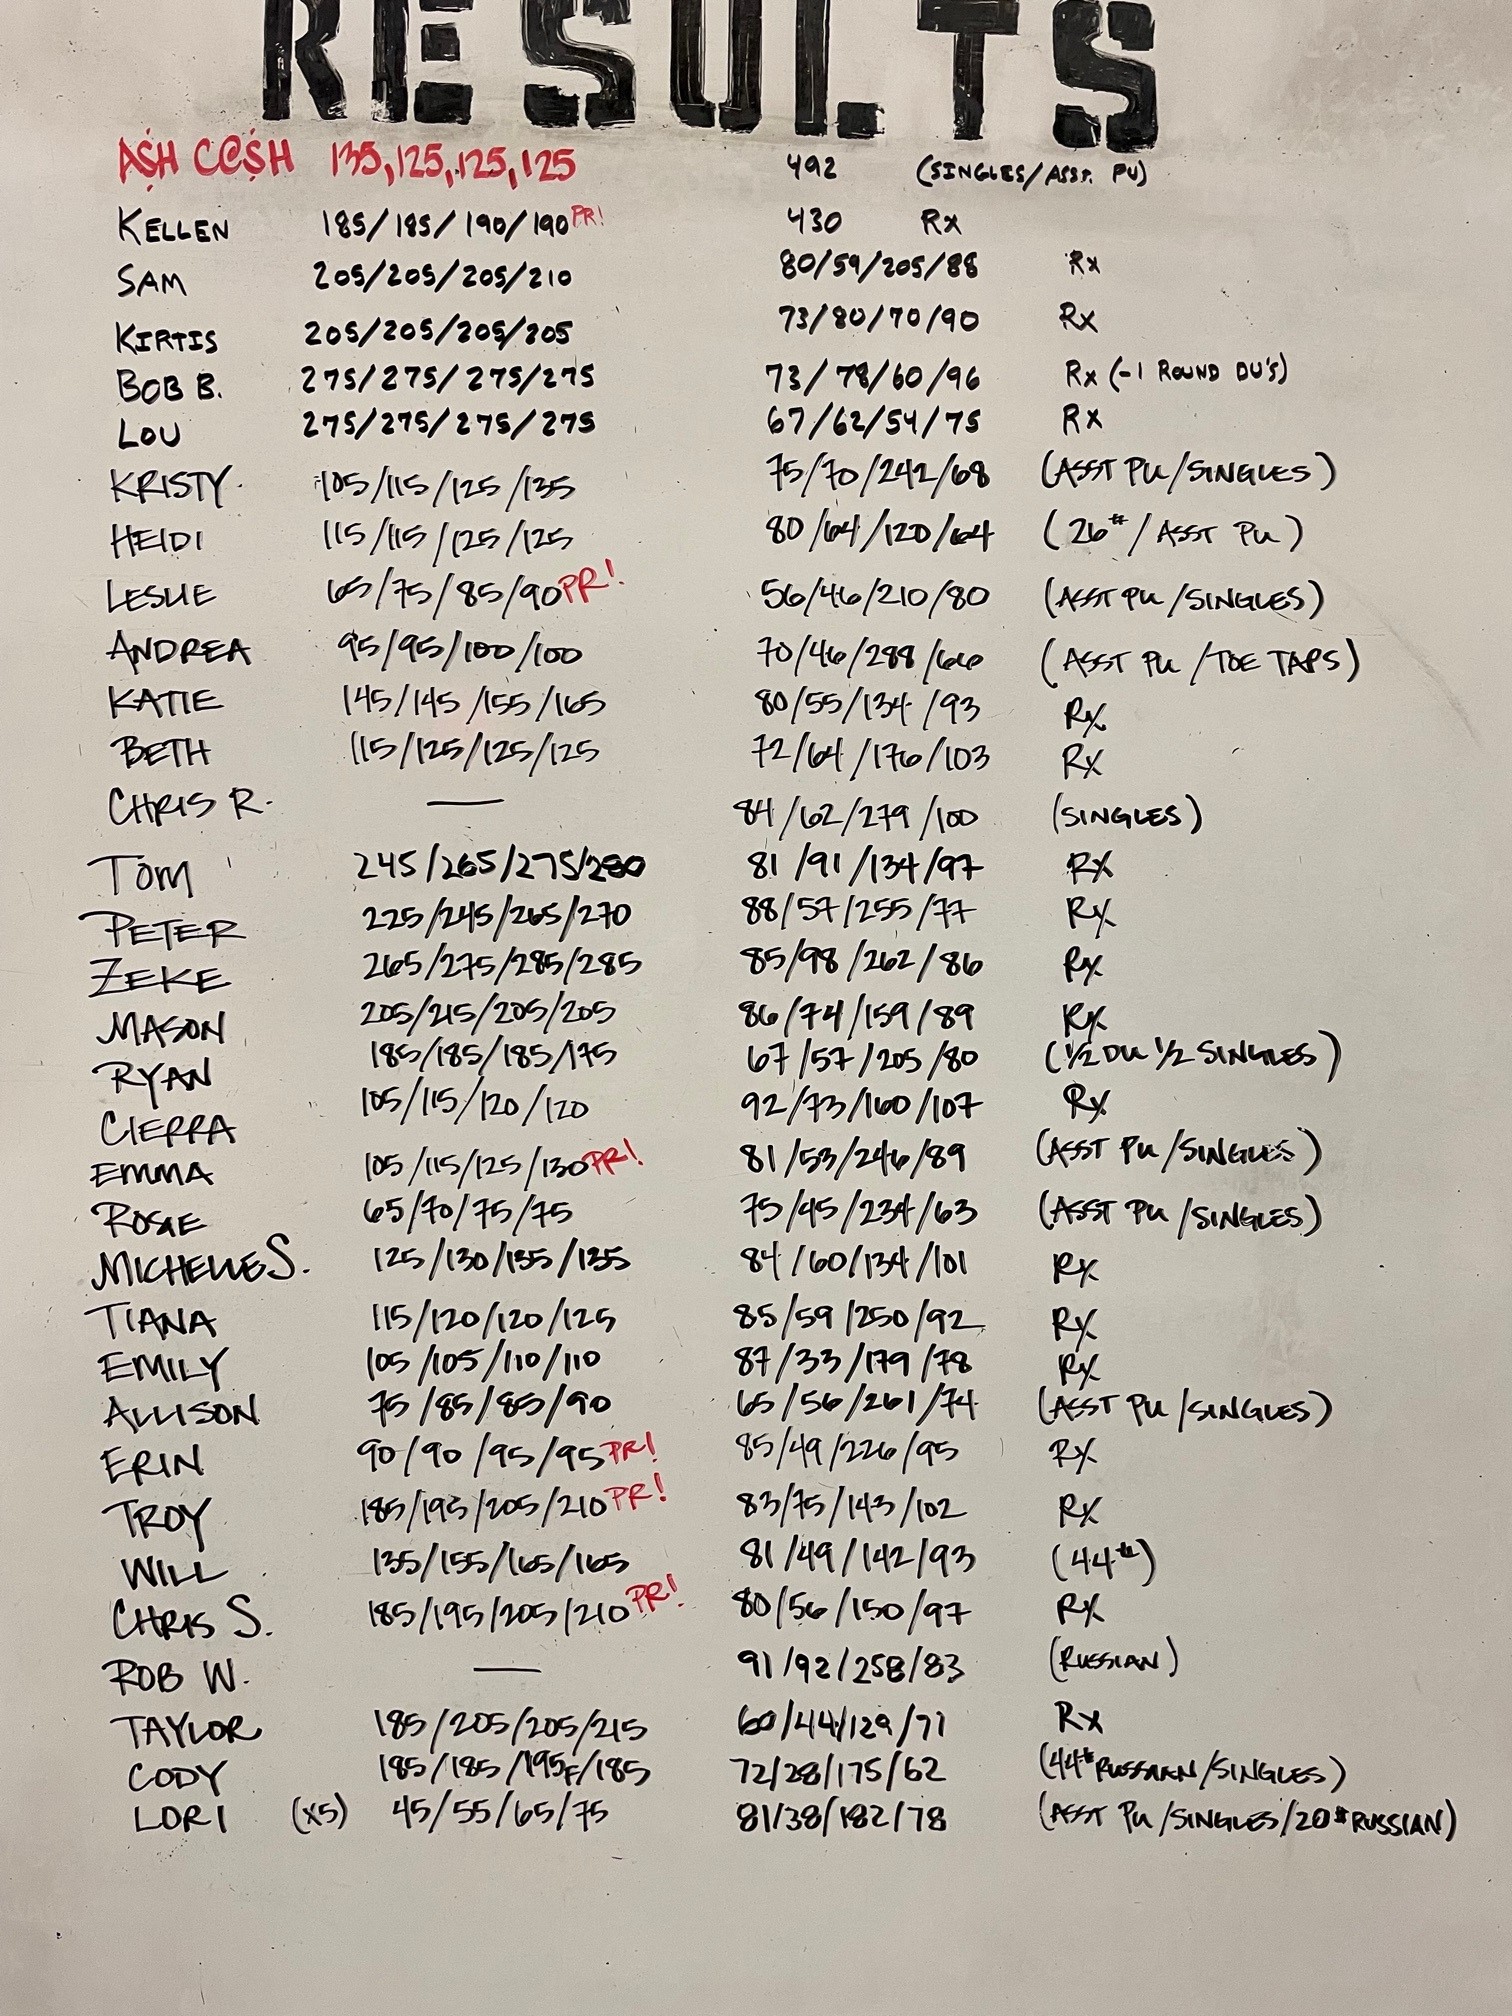 RESULTS
A$H C@$H 135,125,125,125 492 (SINGLES/ASST. PU)
KELLEN 185/185/190/190 PR! 430 Rx
SAM 205/205/205/210 80/59/205/88 Rx
KIRTIS 205/205/205/205 73/80/70/90 Rx
BOB B. 275/275/275/275 73/78/60/96 Rx (-1 ROUND DU'S)
LOU 275/275/275/275 67/62/54/75 Rx
KRISTY 105/115/125/135 75/70/242/68 (ASST PU/SINGLES)
HEIDI 115/115/125/125 80/64/120/64 (26#/ASST PU)
LESLIE 65/75/85/90 PR! 56/46/210/80 (ASST PU/SINGLES)
ANDREA 95/95/100/100 70/46/288/66 (ASST PU/TOE TAPS)
KATIE 145/145/155/165 80/55/134/93 Rx
BETH 115/125/125/125 72/64/176/103 Rx
CHRIS R. — 84/62/279/100 (SINGLES)
TOM 245/265/275/280 81/91/134/97 RX
PETER 225/245/265/270 88/57/255/77 Rx
ZEKE 265/275/285/285 85/98/262/86 Rx
MASON 205/215/205/205 86/74/159/89 Rx
RYAN 185/185/185/175 67/57/205/80 (1/2 DU 1/2 SINGLES)
CIERRA 105/115/120/120 92/73/160/107 Rx
EMMA 105/115/125/130 PR! 81/53/246/89 (ASST PU/SINGLES)
ROSIE 65/70/75/75 75/45/234/63 (ASST PU/SINGLES)
MICHELLE S. 125/130/135/135 84/60/134/101 Rx
TIANA 115/120/120/125 85/59/250/92 Rx
EMILY 105/105/110/110 87/33/179/78 Rx
ALLISON 75/85/85/90 65/56/261/74 (ASST PU/SINGLES)
ERIN 90/90/95/95 PR! 85/49/226/95 Rx
TROY 185/195/205/210 PR! 83/75/143/102 Rx
WILL 135/155/165/165 81/49/142/93 (44#)
CHRIS S. 185/195/205/210 PR! 80/56/150/97 Rx
ROB W. — 91/92/258/83 (RUSSIAN)
TAYLOR 185/205/205/215 60/44/129/71 Rx
CODY 185/185/195F/185 72/28/175/62 (44# RUSSIAN/SINGLES)
LORI (x5) 45/55/65/75 81/38/182/78 (ASST PU/SINGLES/20# RUSSIAN)